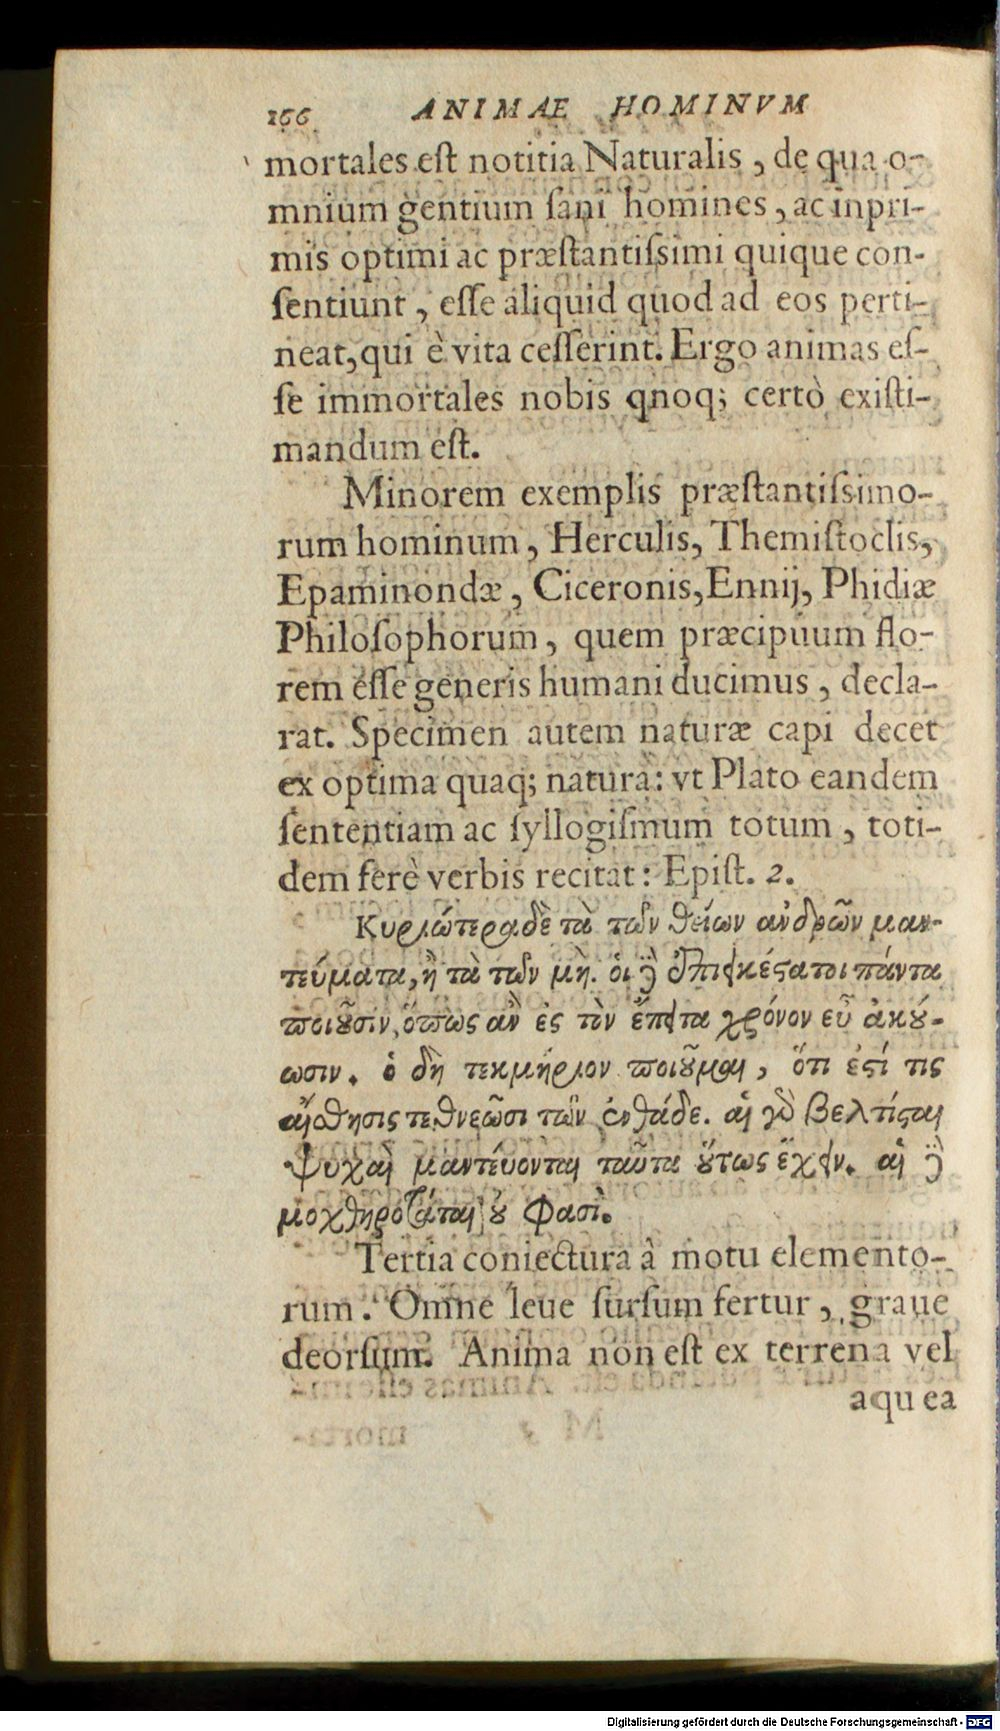 166 ANIMAE HOMINVM
mortales est notitia Naturalis, de qua o-
mnium gentium sani homines, ac inpri-
mis optimi ac præstantissimi quique con-
sentiunt, esse aliquid quod ad eos perti-
neat, qui è vita cesserint. Ergo animas es-
se immortales nobis qnoq; certò existi-
mandum est.
Minorem exemplis præstantissimo-
rum hominum, Herculis, Themistoclis,
Epaminondæ, Ciceronis, Ennij, Phidiæ
Philosophorum, quem præcipuum flo-
rem esse generis humani ducimus, decla-
rat. Specimen autem naturæ capi decet
ex optima quaq; natura: vt Plato eandem
sententiam ac syllogismum totum, toti-
dem ferè verbis recitat: Epist. 2.
Κυριώτερα δὲ τὰ τῶν θείων ἀνδρῶν μαν-
τεύματα, ἢ τὰ τῶν μὴ. οἱ δὲ ἐπιεικέςατοι πάντα
ποιοῦσιν, ὅπως ἂν ἐς τὸν ἔπειτα χρόνον εὖ ἀκού-
ωσιν. ὁ δὴ τεκμήριον ποιοῦμαι, ὅτι ἐςί τις
αἴσθησις τεθνεῶσι τῶν ἐνθάδε. αἱ γὰρ βελτίςαι
ψυχαὶ μαντεύονται ταῦτα οὕτως ἔχειν. αἱ δὲ
μοχθηρόταται οὐ φασὶ.
Tertia coniectura à motu elemento-
rum. Omne leue sursum fertur, graue
deorsum. Anima non est ex terrena vel
aquea
Digitalisierung gefördert durch die Deutsche Forschungsgemeinschaft - DFG